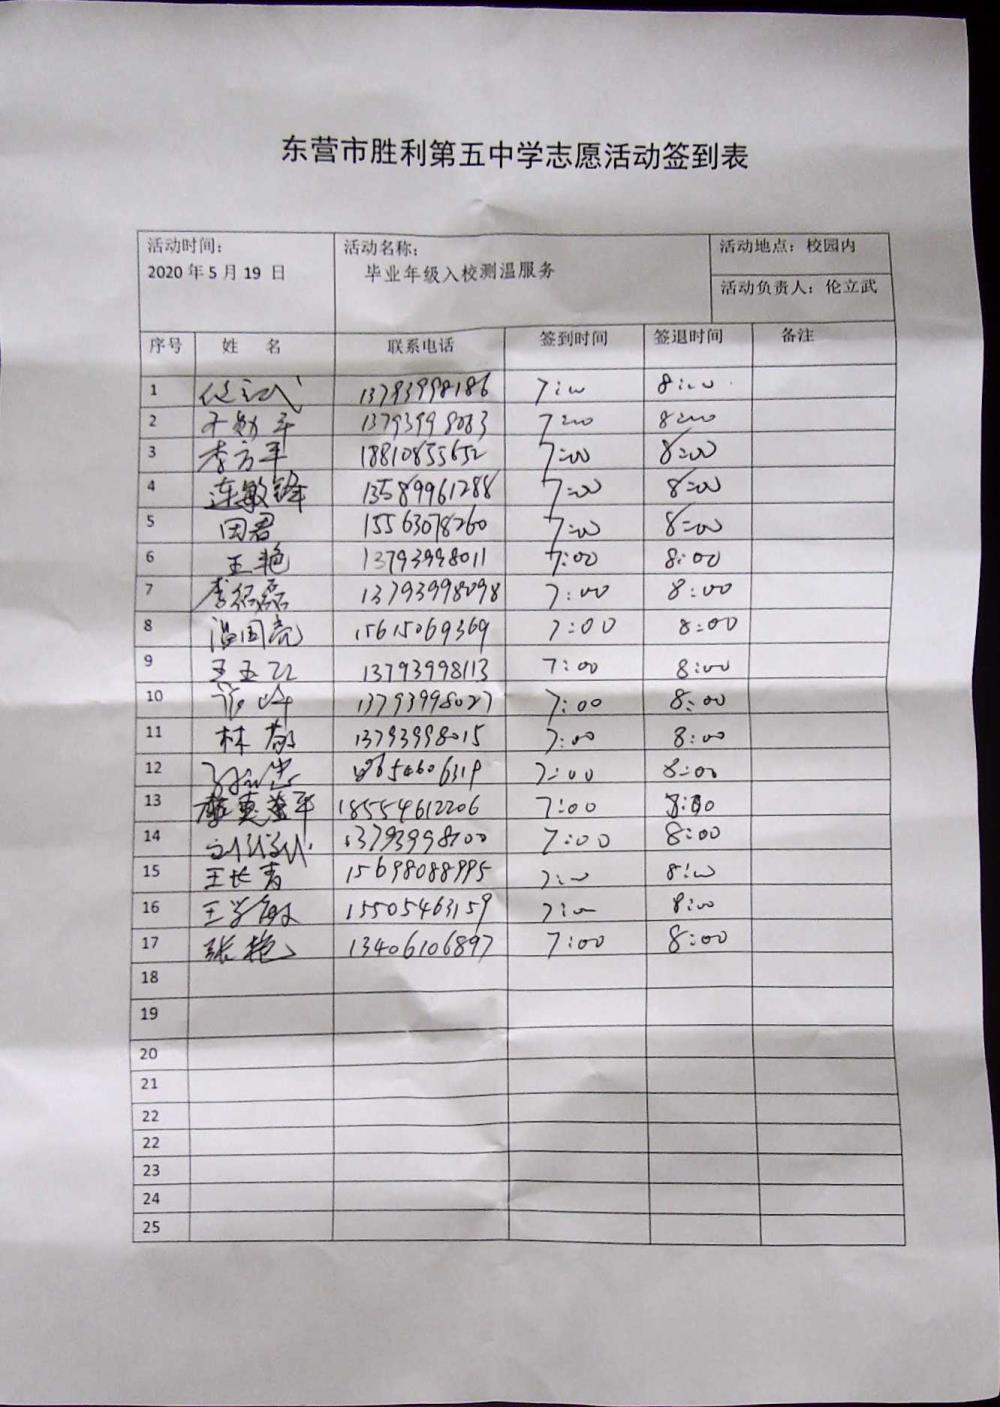 东营市胜利第五中学志愿活动签到表
活动时间： 活动名称： 活动地点：校园内
2020年5月19日 毕业年级入校测温服务
活动负责人：伦立武
序号 姓 名 联系电话 签到时间 签退时间 备注
1 伦立武 13793998186 7:00 8:00
2 13793998083 7:00 8:00
3 李方平 18810855652 7:00 8:00
4 连敏锋 13589961288 7:00 8:00
5 田君 15563078260 7:00 8:00
6 王艳 13793998011 7:00 8:00
7 李红磊 13793998098 7:00 8:00
8 温国亮 15615069369 7:00 8:00
9 13793998113 7:00 8:00
10 13793998027 7:00 8:00
11 林 13793998015 7:00 8:00
12 7:00 8:00
13 18554612206 7:00 8:00
14 13793998100 7:00 8:00
15 王长青 15698088995 7:00 8:00
16 王学敏 15505463159 7:00 8:00
17 张艳 13406106897 7:00 8:00
18
19
20
21
22
22
23
24
25